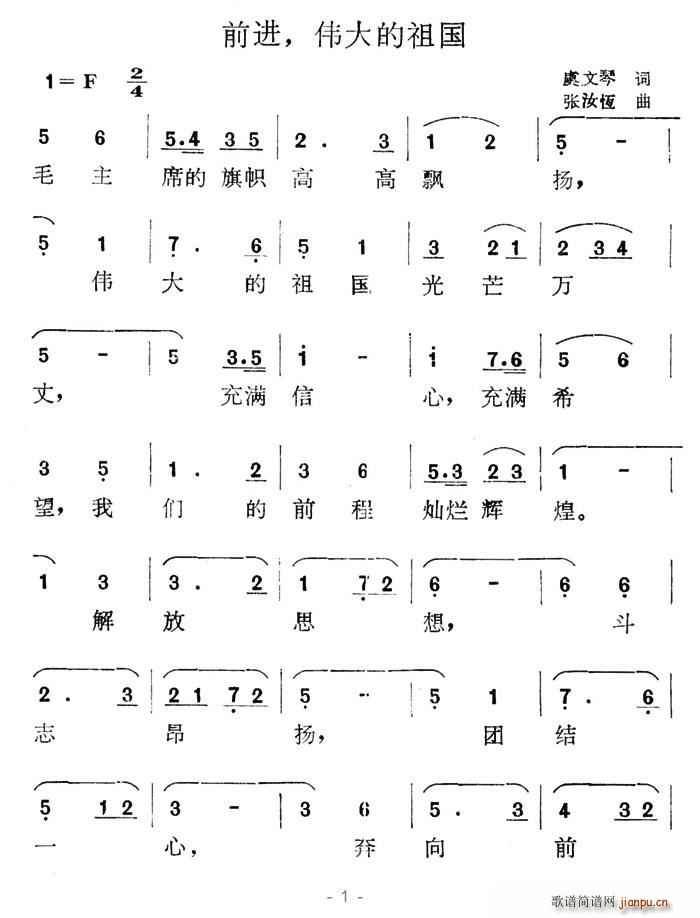 前进，伟大的祖国
1=F 2/4
虞文琴 词
张汝恆 曲
5 6 | 5.4 3 5 | 2 . 3 | 1 2 | 5 - |
毛 主 席的 旗帜 高 高 飘 扬，
5 1 | 7 . 6 | 5 1 | 3 2 1 | 2 3 4 |
伟 大 的 祖 国 光 芒 万
5 - | 5 3.5 | i - | i 7.6 | 5 6 |
丈， 充满 信 心，充满 希
3 5 | 1 . 2 | 3 6 | 5.3 2 3 | 1 - |
望，我 们 的 前 程 灿烂 辉 煌。
1 3 | 3 . 2 | 1 7 2 | 6 - | 6 6 |
解 放 思 想， 斗
2 . 3 | 2 1 7 2 | 5 - | 5 1 | 7 . 6 |
志 昂 扬， 团 结
5 1 2 | 3 - | 3 6 | 5 . 3 | 4 3 2 |
一 心， 奔 向 前
- 1 -
歌谱简谱网
jianpu.cn